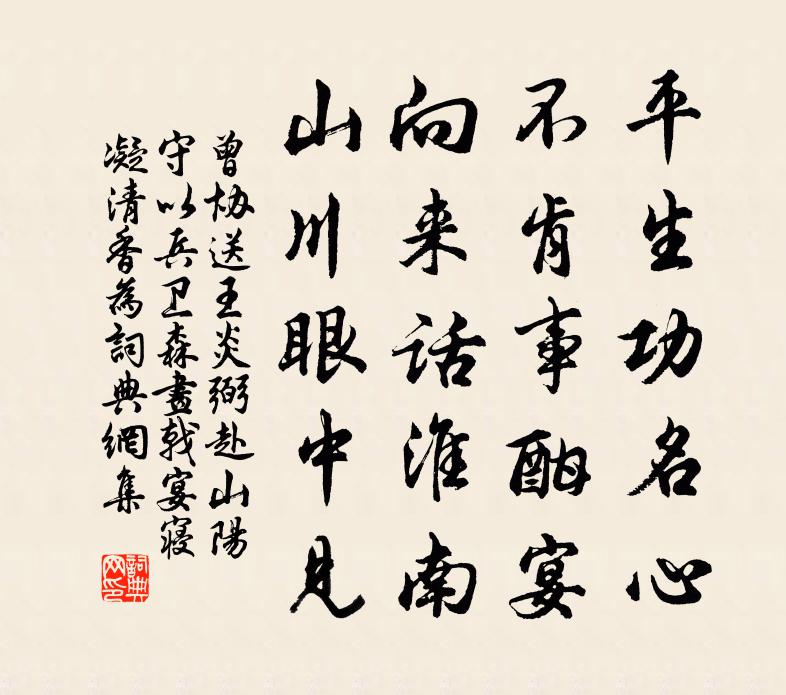 平生功名心
不肯事酣宴
向来话淮南
山川眼中見
曾协送王炎弼赴山陽
守以兵卫森畫戟宴寝
凝清香為詞典網集
詞典
网印